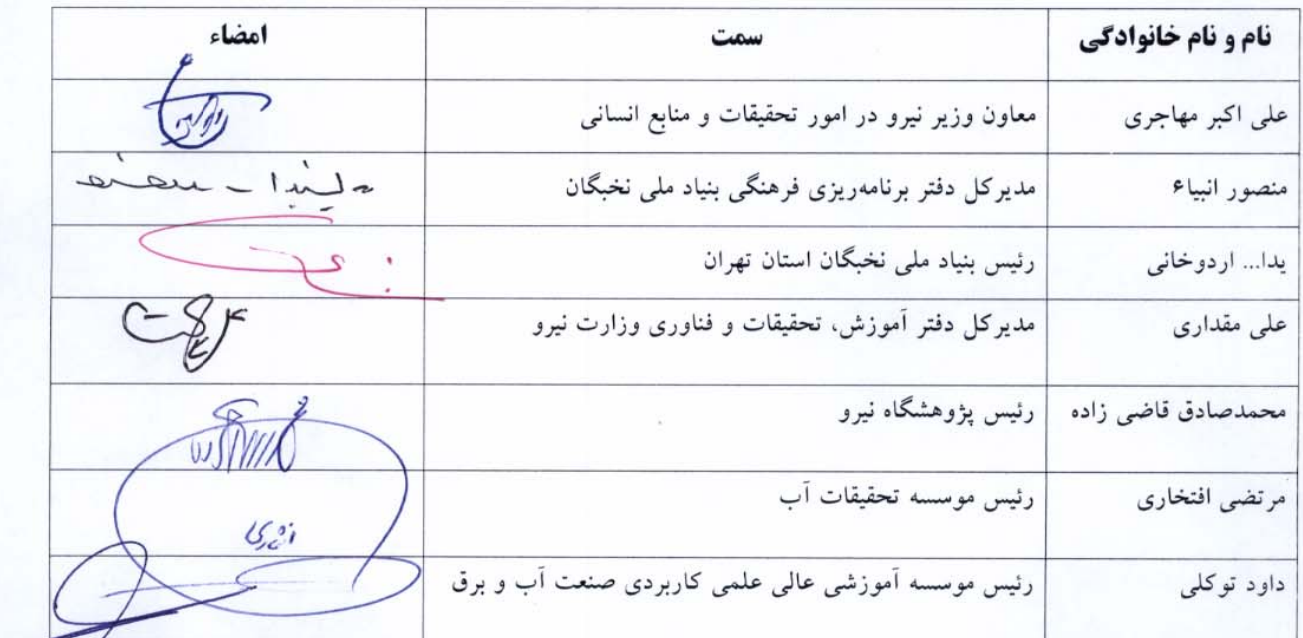 نام و نام خانوادگی سمت امضاء
علی اکبر مهاجری معاون وزیر نیرو در امور تحقیقات و منابع انسانی
منصور انبیاء مدیرکل دفتر برنامه‌ریزی فرهنگی بنیاد ملی نخبگان
یدا... اردوخانی رئیس بنیاد ملی نخبگان استان تهران
علی مقداری مدیرکل دفتر آموزش، تحقیقات و فناوری وزارت نیرو
محمدصادق قاضی زاده رئیس پژوهشگاه نیرو
مرتضی افتخاری رئیس موسسه تحقیقات آب
داود توکلی رئیس موسسه آموزشی عالی علمی کاربردی صنعت آب و برق